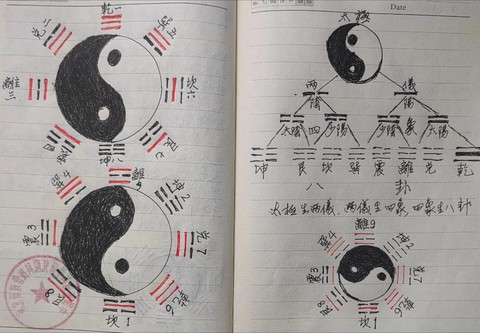 乾一
兌二
巽五
離三
坎六
震四
艮七
坤八
離9
巽4
坤2
震3
兌7
艮8
乾6
坎1
Date
太極
兩 儀
陰 陽
太陰 四 少陽 少陰 象 太陽
坤 艮 坎 巽 震 離 兌 乾
八 卦
太極生兩儀，兩儀生四象，四象生八卦
離9
巽4 坤2
震3 兌7
艮8 乾6
坎1